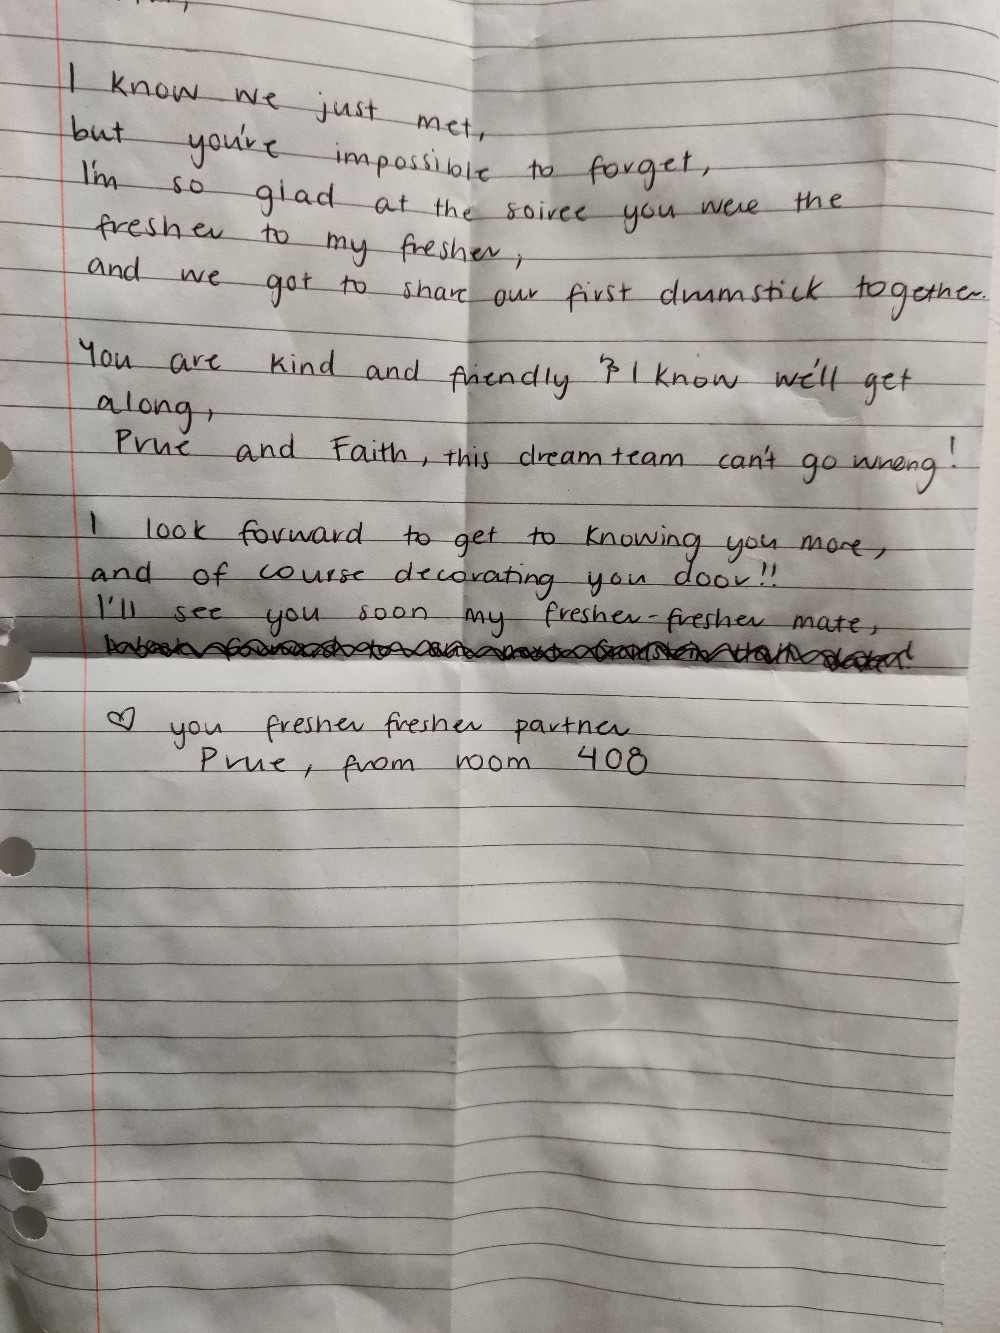 I know we just met,
but you've impossible to forget,
I'm so glad at the soiree you were the
fresher to my fresher,
and we got to share our first drumstick together.
You are kind and friendly & I know we'll get
along,
Prue and Faith, this dream team can't go wrong!
I look forward to get to knowing you more,
and of course decorating you door!!
I'll see you soon my fresher-fresher mate,
♡ you fresher fresher partner
Prue, from room 408